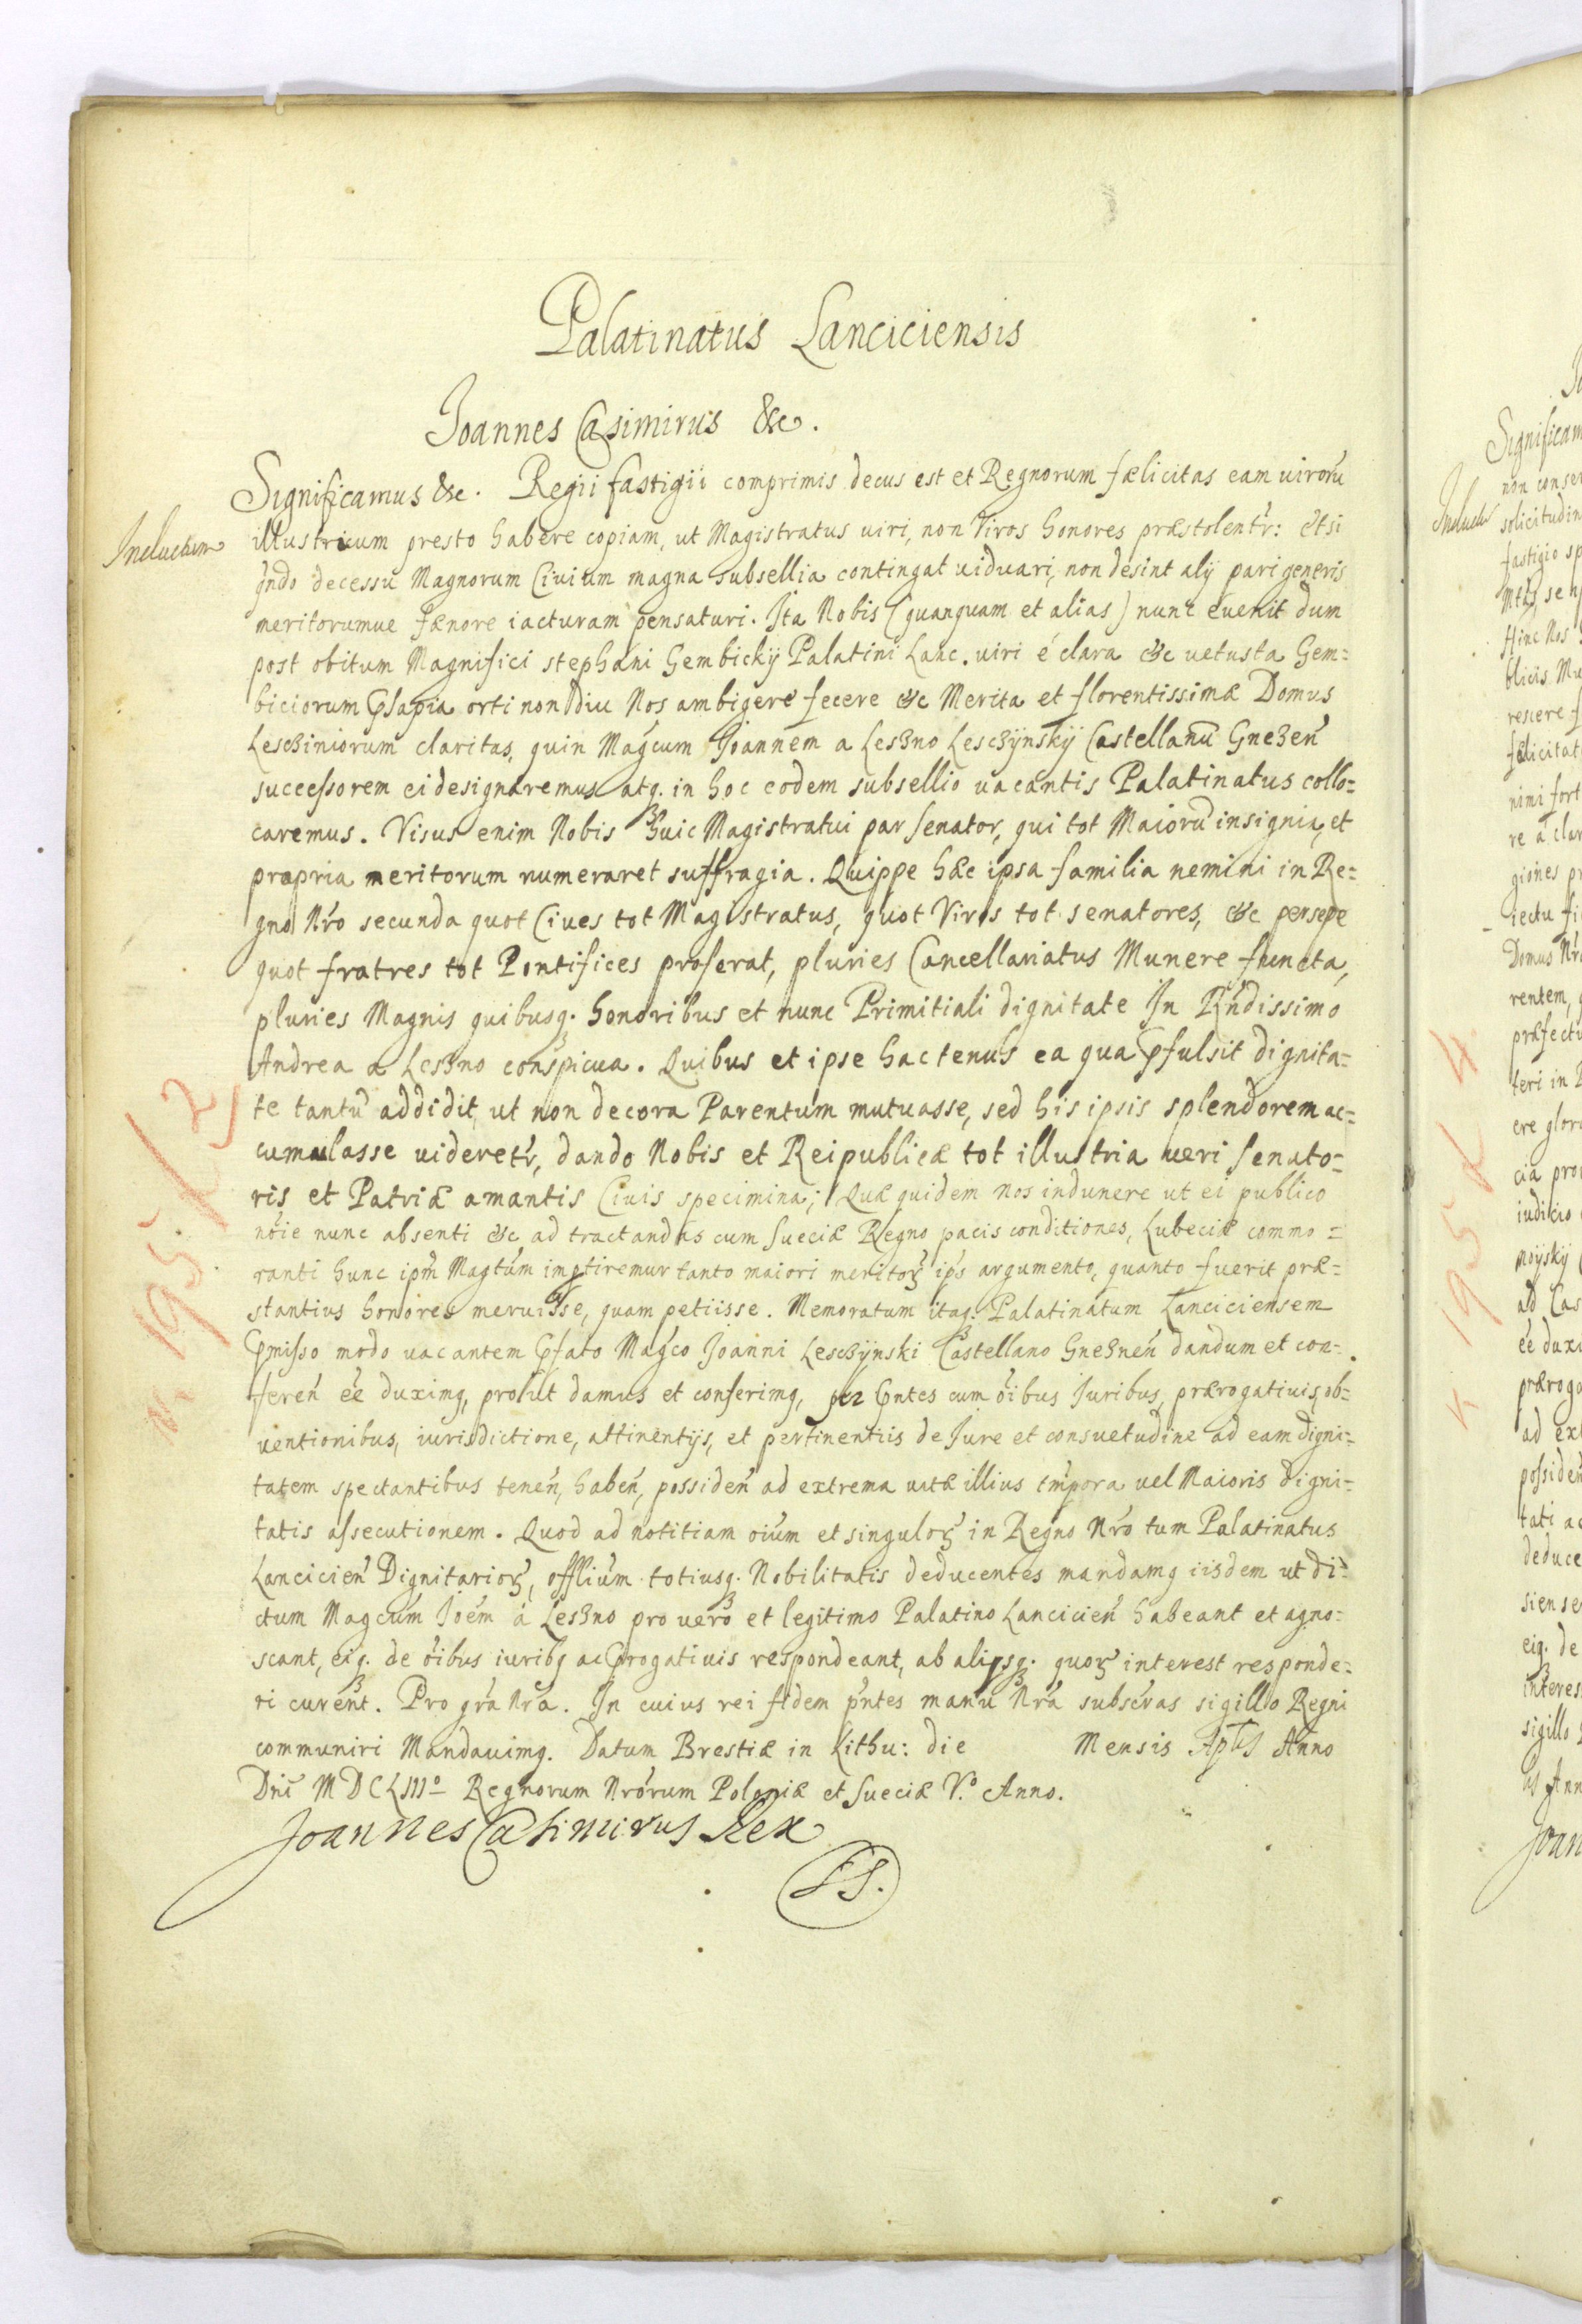 Palatinatus Lanciciensis
Joannes Casimirus &c.
Significamus &c. Regii fastigii comprimis decus est et Regnorum fælicitas eam uiroru͂
Inductum
illustrium presto habere copiam, ut Magistratus uiri, non Viros honores præstolent'r: Etsi
q̃ndo decessu Magnorum Ciuium magna subsellia contingat uiduari, non desint alij pari generis
meritorumue fænore iacturam pensaturi. Ita Nobis (quanquam et alias) nunc euenit dum
post obitum Magnifici stephani Gembickij Palatini Lanc. uiri é clara &c uetusta Gem=
biciorum Psapia orti non diu Nos ambigere fecere &c Merita et florentissimæ Domus
Lescziniorum claritas, quin Mag͂cum Joannem a Leszno Lesczynskÿ Castellanu͂ Gnezen͂
successorem ei designaremus atq. in hoc eodem subsellio uacantis Palatinatus collo=
caremus. Visus enim Nobis huic Magistratui par Senator, qui tot Maioru͂ insignia, et
propria meritorum numeraret suffragia. Quippe hæc ipsa familia nemini in Re=
gno Nr͂o secunda quot Ciues tot Magistratus, quot Viros tot senatores, &c persepe
quot fratres tot Pontifices proferat, pluries Cancellariatus Munere functa,
pluries Magnis quibusq. honoribus et nunc Primitiali dignitate In Rn͂dissimo
Andrea a Leszno conspicua. Quibus et ipse hactenus ea qua Pfulsit dignita=
te tantu͂ addidit, ut non decora Parentum mutuasse, sed his ipsis splendorem ac=
cumulasse uideret'r, dando Nobis et Reipublicæ tot illustria ueri Senato=
ris et Patriæ amantis Ciuis specimina; Quæ quidem nos indunere ut ei publico
no͂ie nunc absenti &c ad tractandas cum Sueciæ Regno pacis conditiones, Lubeciæ commo=
ranti hunc ip͂m Mag͂tum imptiremur tanto maiori meritoꝝ ip͂s argumento, quanto fuerit præ=
stantius honores meruisse, quam petiisse. Memoratum itaq. Palatinatum Lanciciensem
Pmisso modo uacantem Pfato Mag͂co Joanni Lesczynski Castellano Gneznen͂ dandum et con=
feren͂ e͂e duximꝯ, prout damus et conferimꝯ, Pntes cum o͂ibus Iuribus, prærogatiuis, ob=
uentionibus, iurisdictione, attinentijs, et pertinentiis de Jure et consuetudine ad eam digni=
tatem spectantibus tenen͂, haben͂, possiden͂ ad extrema uitæ illius tm͂pora uel Maioris Digni=
tatis assecutionem. Quod ad notitiam oi͂um et singuloꝝ in Regno Nr͂o tum Palatinatus
Lancicien͂ Dignitarioꝝ, offl͂ium totiusq. Nobilitatis deducentes mandamꝯ iisdem ut di=
ctum Mag͂cum Jo͂em á Leszno pro uero et legitimo Palatino Lancicien͂ habeant et agno=
scant, eiq. de o͂ibus iuribꝯ ac Prογatiuis respondeant, ab alijsq. quoꝝ interest responde=
ri curent. Pro gr͂a Nr͂a. In cuius rei fidem p͂ntes manu Nr͂a subsc͂ras sigillo Regni
communiri Mandauimꝯ. Datum Brestiæ in Lithu: die Mensis Ap͂lis Anno
Dn͂i MDCLIIIº Regnorum Nr͂orum Poloniæ et Sueciæ V.º Anno.
Joannes Casimirus Rex
LS.